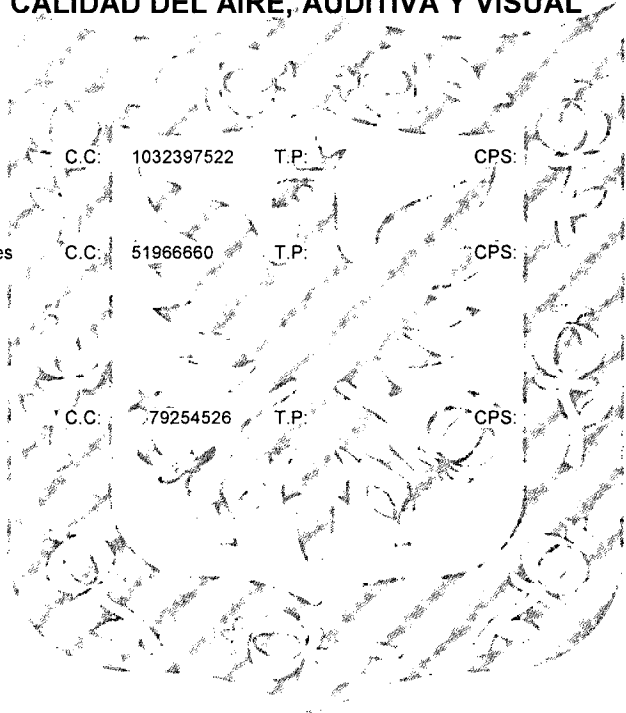 CALIDAD DEL AIRE, AUDITIVA Y VISUAL
C.C: 1032397522 T.P: CPS:
es C.C: 51966660 T.P: CPS:
C.C: 79254526 T.P: CPS: